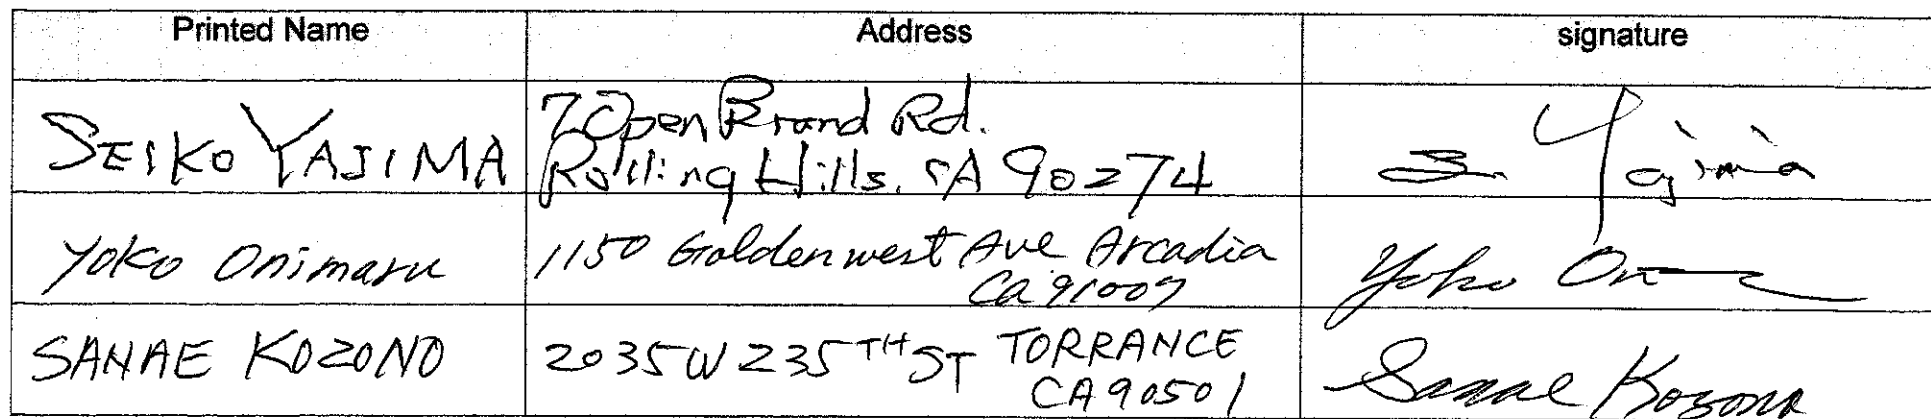 Printed Name Address signature
SEIKO YAJIMA
7 Open Brand Rd.
Rolling Hills, CA 90274
S. Yajima
Yoko Onimaru
1150 Golden west Ave Arcadia
Ca 91007
Yoko On
SANAE KOZONO
2035 W 235TH ST TORRANCE
CA 90501
Sanae Kozono